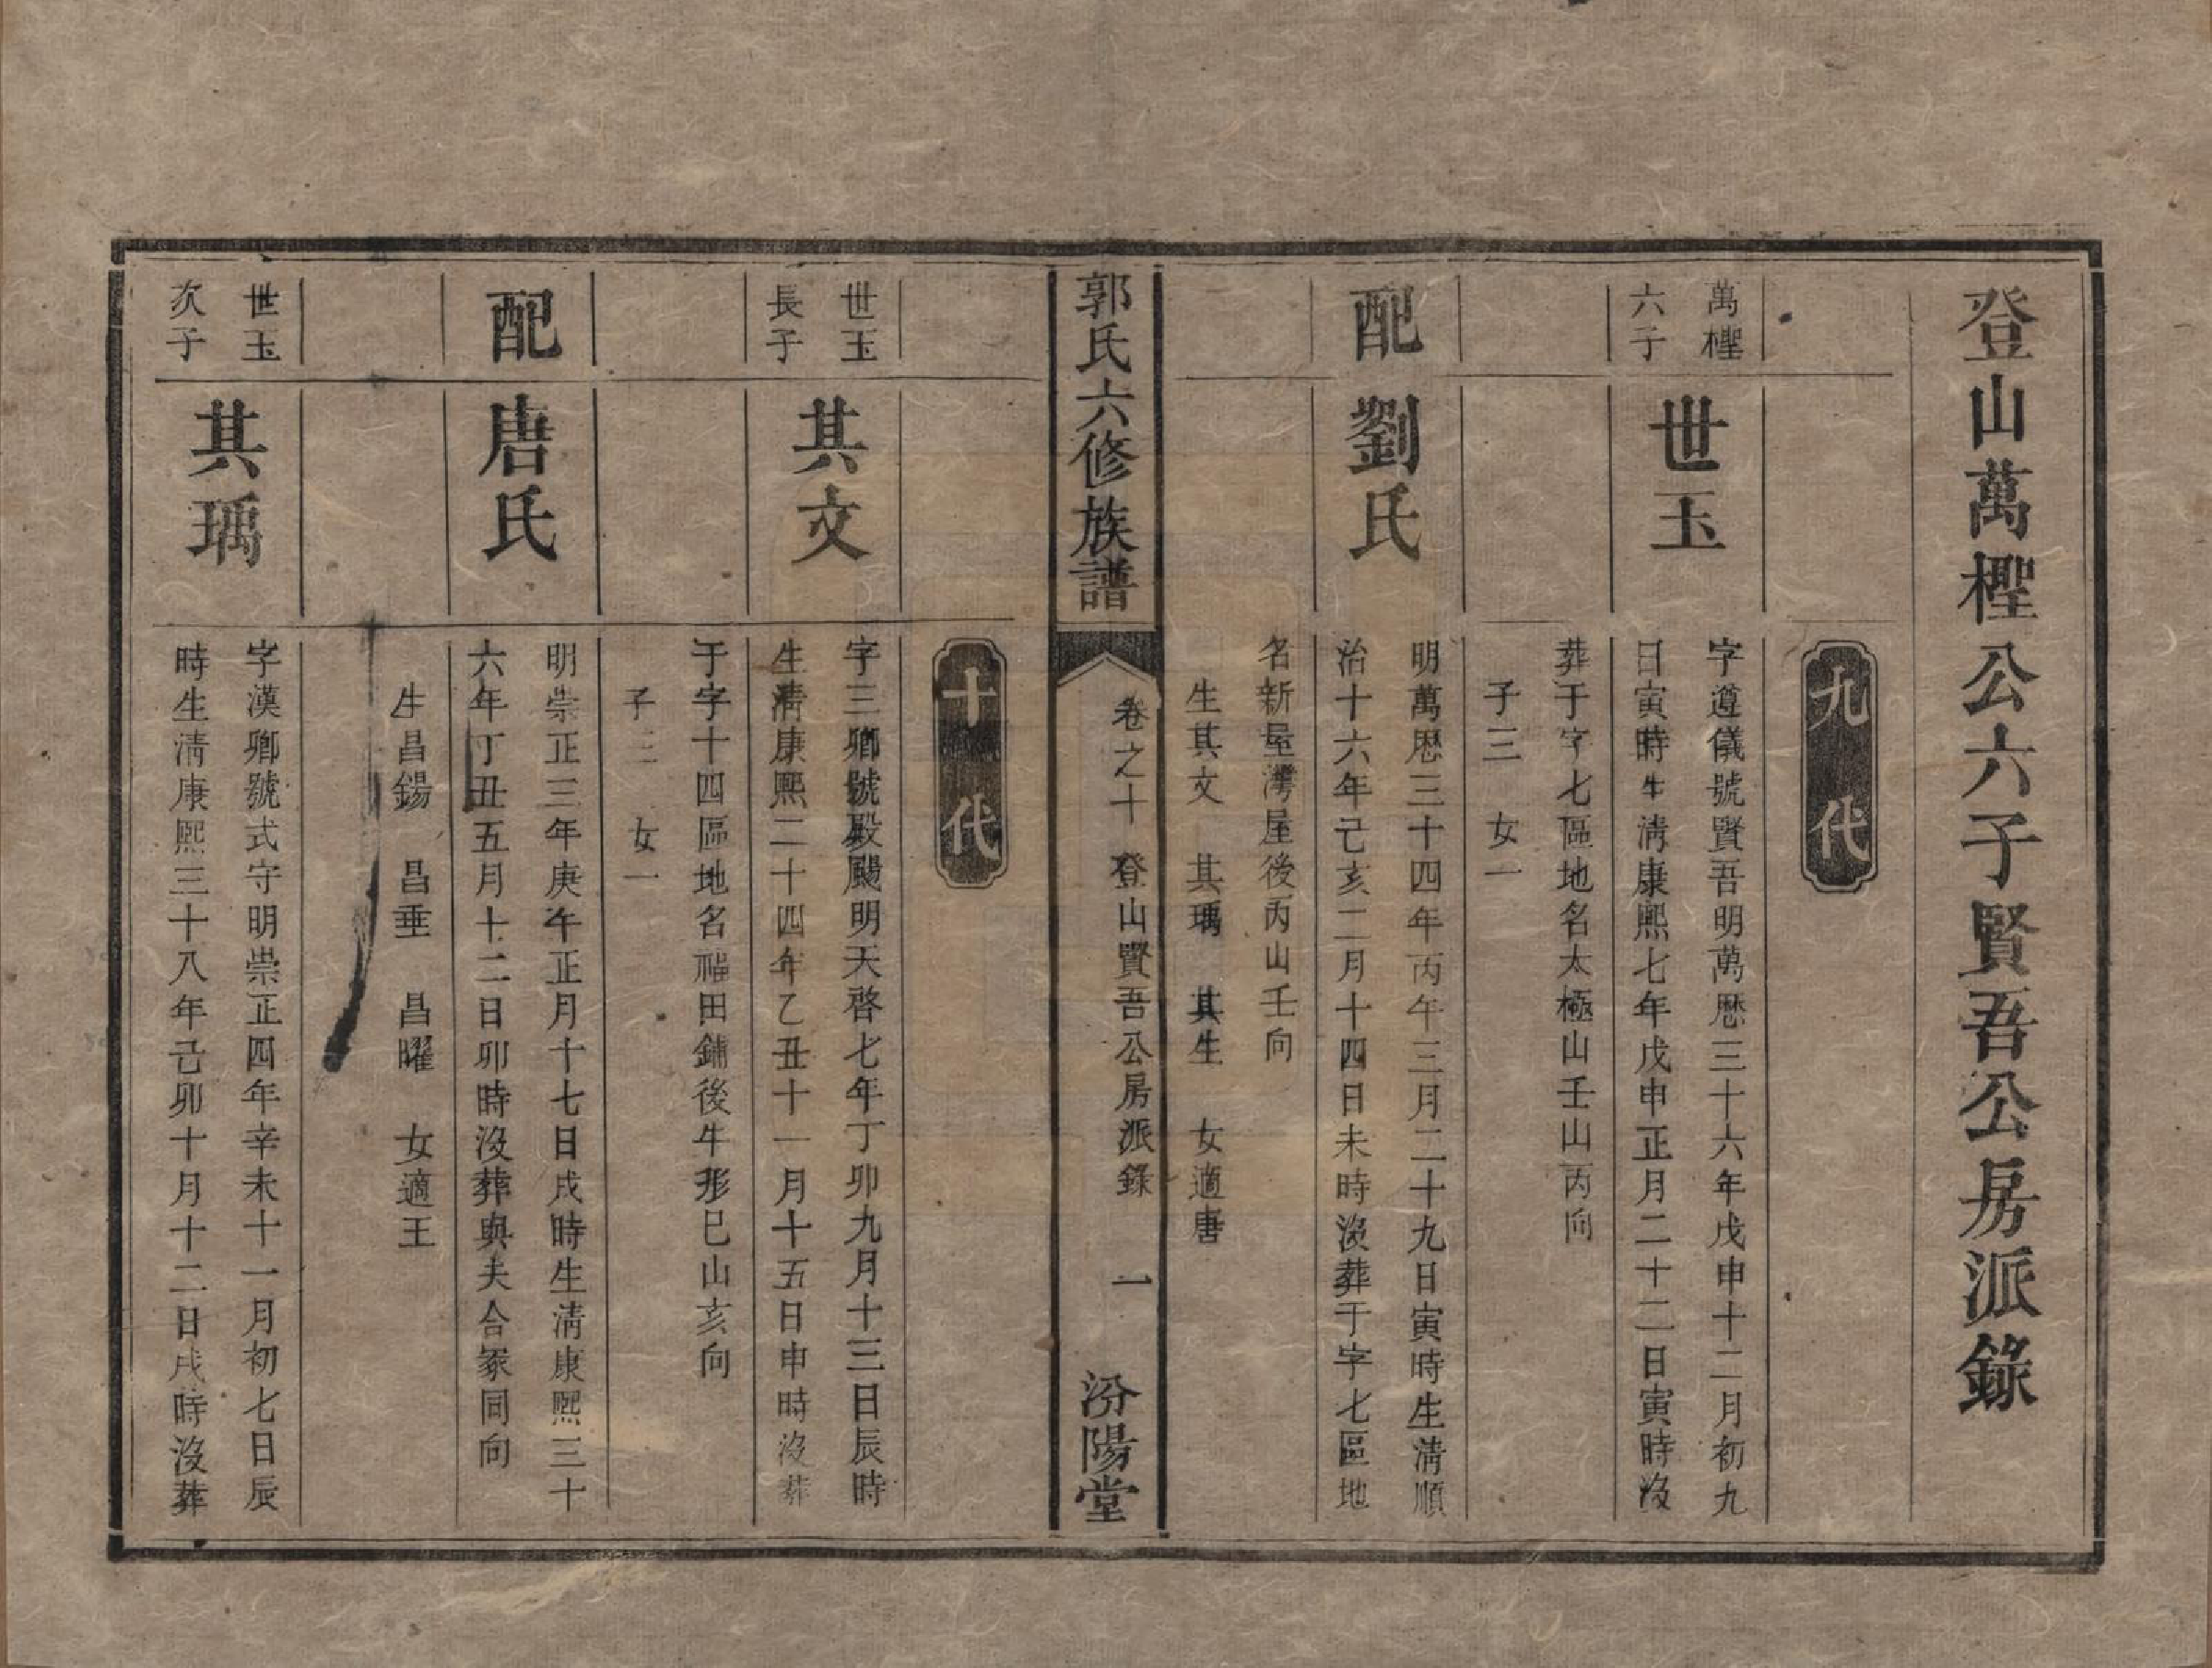 登山萬檉公六子賢吾公房派錄
九代
萬檉
六子
世玉
字遵儀號賢吾明萬厯三十六年戊申十二月初九
日寅時生淸康熙七年戊申正月二十二日寅時沒
葬于字七區地名太極山壬山丙向
子三　女一
配
劉氏
明萬厯三十四年丙午三月二十九日寅時生淸順
治十六年己亥二月十四日未時沒葬于字七區地
名新屋灣屋後丙山壬向
生其文　其瑀　其生　女適唐
郭氏六修族譜
卷之十　登山賢吾公房派錄
一
汾陽堂
十代
世玉
長子
其文
字三卿號殿颺明天啓七年丁卯九月十三日辰時
生淸康熙二十四年乙丑十一月十五日申時沒葬
于字十四區地名福田鋪後牛形巳山亥向
子三　女一
配
唐氏
明崇正三年庚午正月十七日戌時生淸康熙三十
六年丁丑五月十二日卯時沒葬與夫合冢同向
生昌錫　昌垂　昌曜　女適王
世玉
次子
其瑀
字漢卿號式守明崇正四年辛未十一月初七日辰
時生淸康熙三十八年己卯十月十二日戌時沒葬